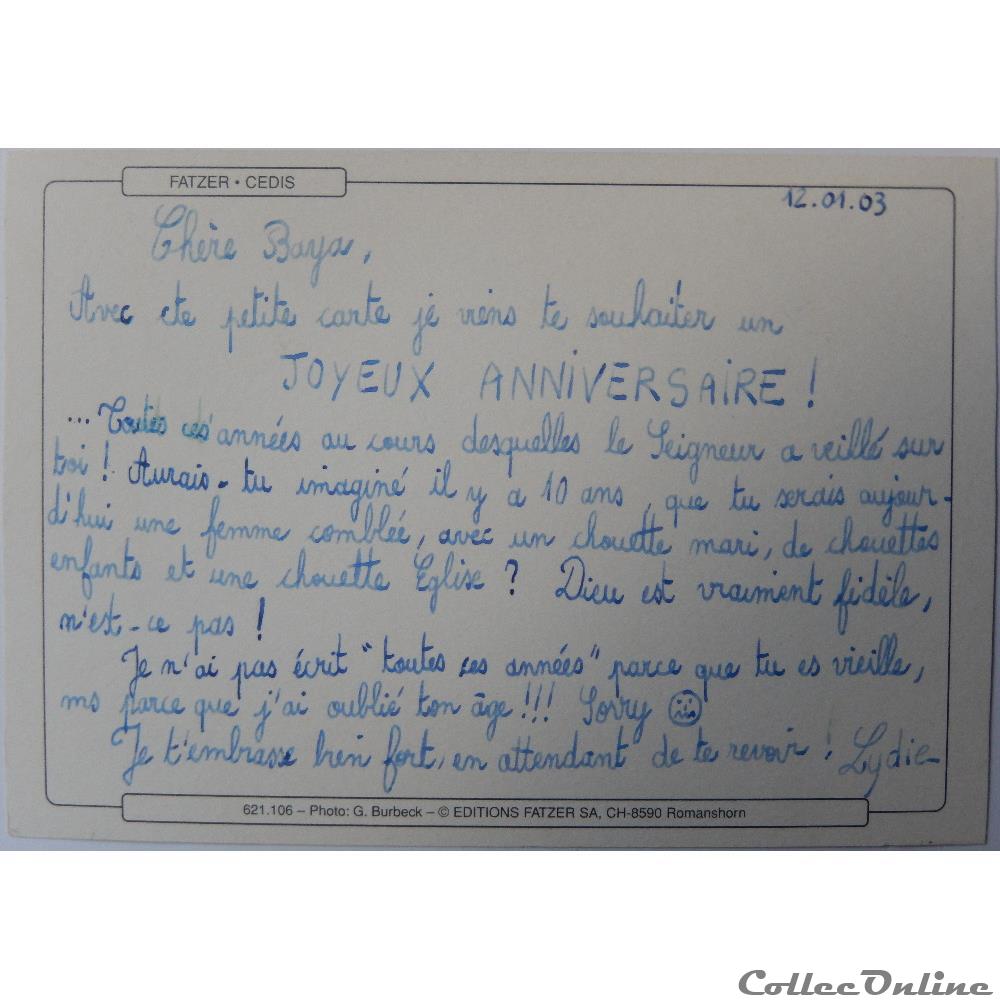 FATZER • CEDIS
12.01.03
Chère Baya,
Avec cte petite carte je viens te souhaiter un
JOYEUX ANNIVERSAIRE !
... Toutes ces années au cours desquelles le Seigneur a veillé sur
toi ! Aurais-tu imaginé il y a 10 ans, que tu serais aujour-
d'hui une femme comblée, avec un chouette mari, de chouettes
enfants et une chouette Église ? Dieu est vraiment fidèle,
n'est-ce pas !
Je n'ai pas écrit "toutes ces années" parce que tu es vieille,
ms parce que j'ai oublié ton âge !!! Sorry
Je t'embrasse bien fort, en attendant de te revoir ! Lydie
621.106 – Photo: G. Burbeck – © EDITIONS FATZER SA, CH-8590 Romanshorn
CollecOnline